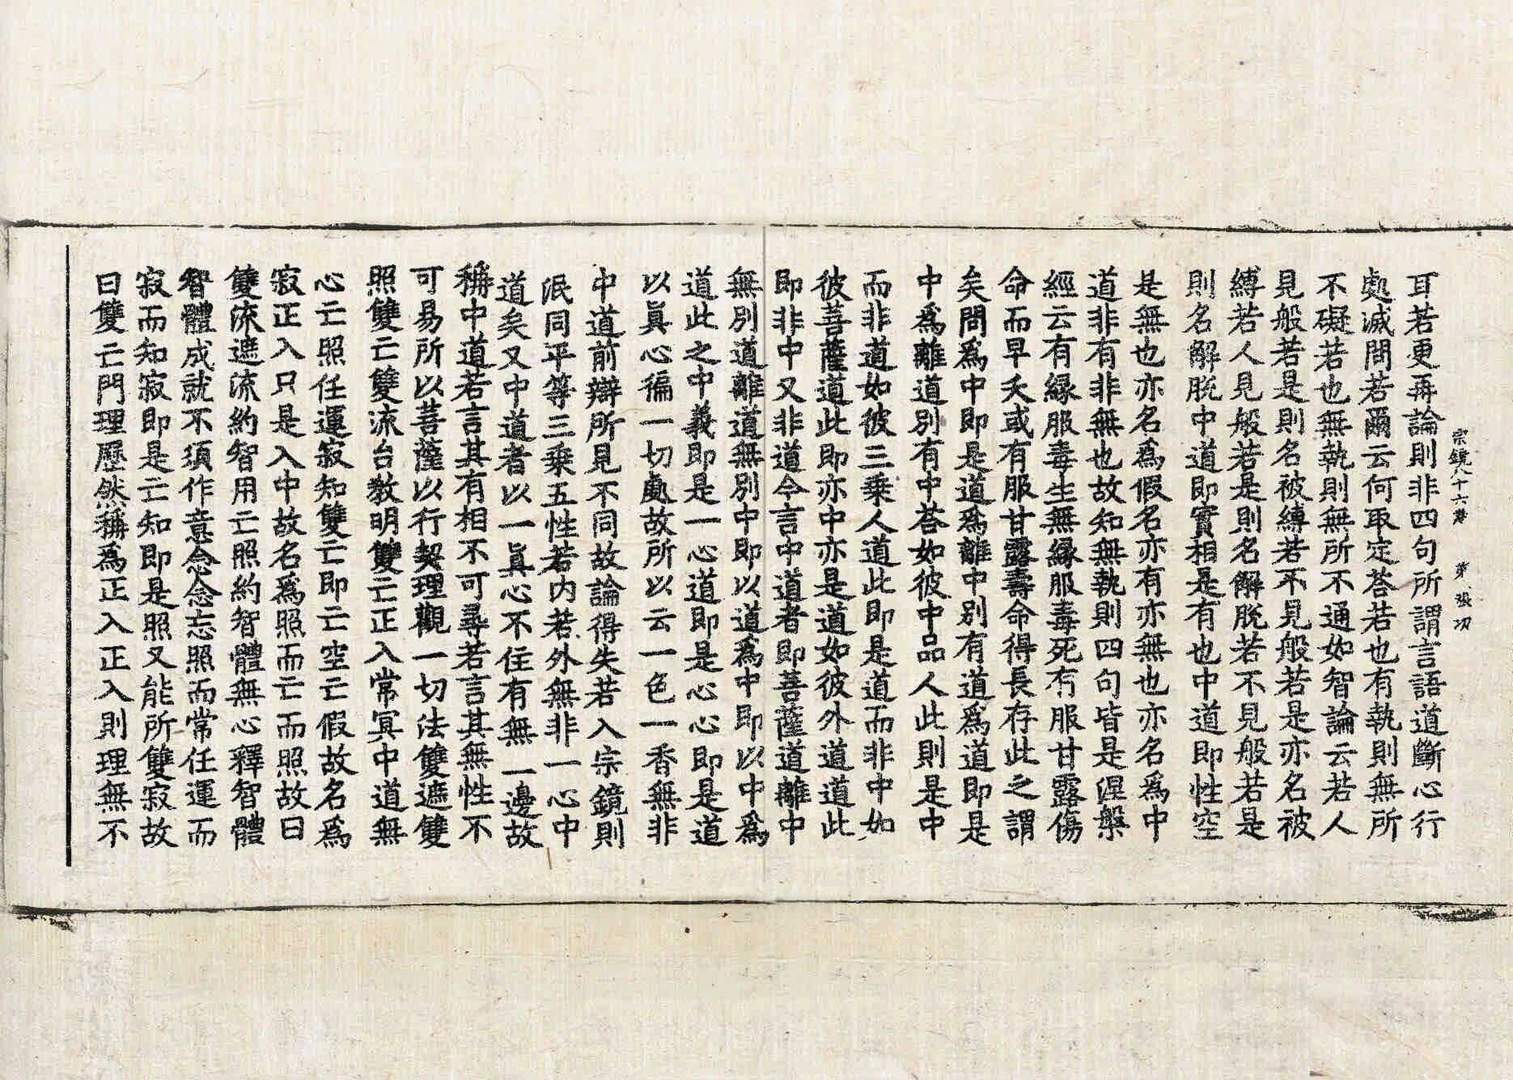 耳若更再論則非四句所謂言語道斷心行
處滅問若爾云何取定荅若也有執則無所
不礙若也無執則無所不通如智論云若人
見般若是則名被縛若不見般若是亦名被
縛若人見般若是則名解脫若不見般若是
則名解脫中道即實相是有也中道即性空
是無也亦名為假名亦有亦無也亦名為中
道非有非無也故知無執則四句皆是涅槃
經云有緣服毒生無緣服毒死有服甘露傷
命而早夭或有服甘露壽命得長存此之謂
矣問為中即是道為離中別有道為道即是
中為離道別有中荅如彼中品人此則是中
而非道如彼三乗人道此即是道而非中如
彼菩薩道此即亦中亦是道如彼外道道此
即非中又非道今言中道者即菩薩道離中
無別道離道無別中即以道為中即以中為
道此之中義即是一心道即是心心即是道
以真心徧一切處故所以云一色一香無非
中道前辯所見不同故論得失若入宗鏡則
泯同平等三乗五性若內若外無非一心中
道矣又中道者以一真心不住有無二邊故
稱中道若言其有相不可尋若言其無性不
可易所以菩薩以行契理觀一切法雙遮雙
照雙亡雙流台教明雙亡正入常冥中道無
心亡照任運寂知雙亡即亡空亡假故名為
寂正入只是入中故名為照而亡而照故曰
雙流遮流約智用亡照約智體無心釋智體
智體成就不須作意念念忘照而常任運而
寂而知寂即是亡知即是照又能所雙寂故
曰雙亡門理歷然稱為正入正入則理無不
宗鏡八十六卷 第 張 功